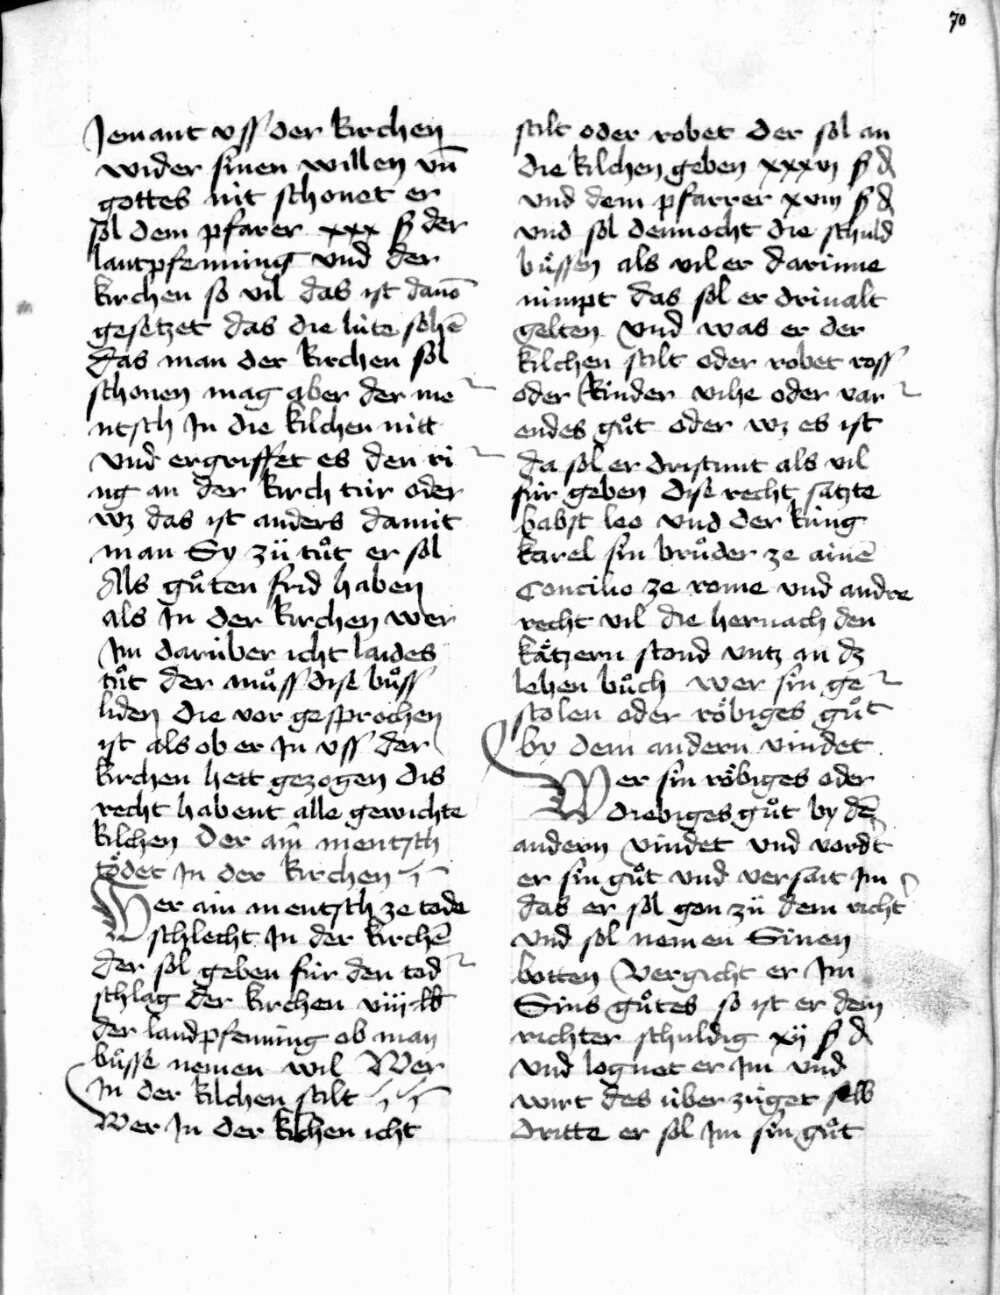 70
Jemant vss der kirchen
wider sinen willen vn̄
gottes nit schonet er
sol dem pfarer xxx ß der
lantpfenning vnd der
kirchen so vil das ist daūo
gesetzet das die lüte sehē
das man der kirchen sol
schonen mag aber der me
ntsch Jn die kilchen nitt
vnd ergriffet es den ri
ng an der kirch tür oder
wz das ist anders damit
man Sy zü tuͦt er sol
Als guͦten frid haben
als Jn der kirchen wer
Jm darüber icht laides
tuͦt der muͦss dise buͦss
liden die vor gesprochen
ist als ob er Jn vss der
kirchen hett gezogen dis
recht habent alle gewichte
kilchen Der ain mentsch
toͤdet Jn der kirchen
Wer ain mentsch ze tode
schlecht Jn der kirchē
der sol geben für den tod
schlag der kirchen viij lb
der landpfenning ob man
buͦsse nemen wil Wer
Jn der kilchen stilt
Wer Jn der kilchen icht
stilt oder robet der sol an
die kilchen geben xxxvj ß ₰
vnd dem pfarrer xviij ß ₰
vnd sol dennocht die schuld
buͤssen als vil er darinne
nimpt das sol er drivalt
gelten Vnd was er der
kilchen stilt oder robet ross
oder Rinder vihe oder var
endes guͦt oder wz es ist
da sol er dristunt als vil
für geben Dise recht satzte
babst leo vnd der küng
karel sin bruͦder ze ainē
Concilio ze rome vnd andre
recht vil die hernach den
kaͤtzern stond vntz an dz
lehen buͦch Wer sin ge
stolen oder roͤbiges guͦt
by dem andern vindet
Wer sin roͤbiges oder
diebiges guͦt by dē
andern vindet vnd vordt
er sin guͦt vnd versait Jm
das er sol gon zü dem richt
vnd sol nemen Sinen
botten Vergicht er Jm
Sins guͦtes so ist er dem
richter schuldig xij ß ₰
vnd lognet er Jm vnd
wirt des über züget selb
dritte er sol Jm sin guͦt